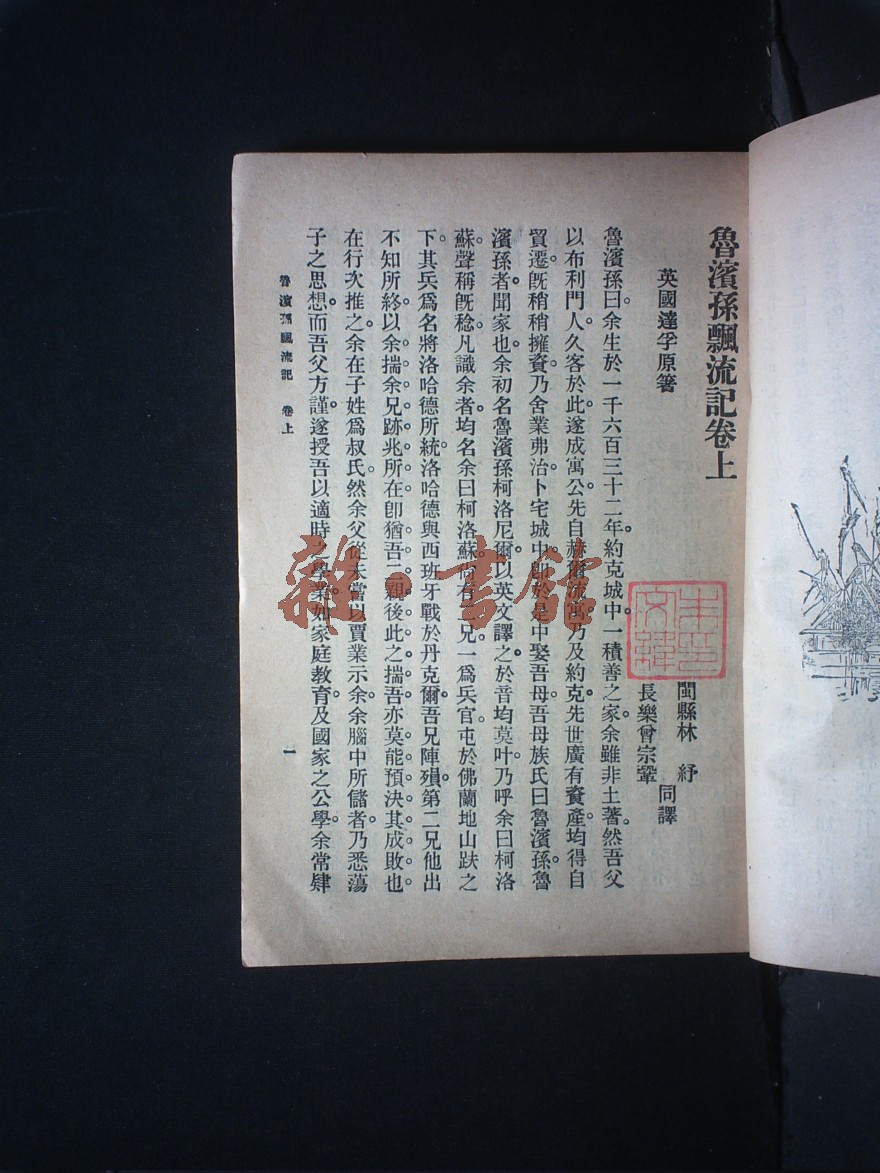 魯濱孫飄流記卷上
英國達孚原箸
閩縣林　紓
長樂曾宗鞏
同譯
魯濱孫曰。余生於一千六百三十二年。約克城中。一積善之家。余雖非土著。然吾父
以布利門人。久客於此。遂成寓公。先自赫爾流寓。乃及約克。先世廣有資產。均得自
貿遷。既稍稍擁資。乃舍業弗治。卜宅城中。即於是中娶吾母。吾母族氏曰魯濱孫。魯
濱孫者。聞家也。余初名魯濱孫柯洛尼爾。以英文譯之。於音均莫叶。乃呼余曰柯洛
蘇。聲稱既稔。凡識余者。均名余曰柯洛蘇。尚有二兄。一為兵官。屯於佛蘭地山趺之
下。其兵為名將洛哈德所統。洛哈德與西班牙戰於丹克爾。吾兄陣殞。第二兄他出
不知所終。以余揣余兄跡兆所在。即猶吾二親後此之揣吾。亦莫能預決其成敗也。
在行次推之。余在子姓為叔氏。然余父從未嘗以賈業示余。余腦中所儲者。乃悉蕩
子之思想。而吾父方謹。遂授吾以適時之學業。如家庭教育。及國家之公學。余常肄
魯濱孫飄流記　卷上
一
雜·書館